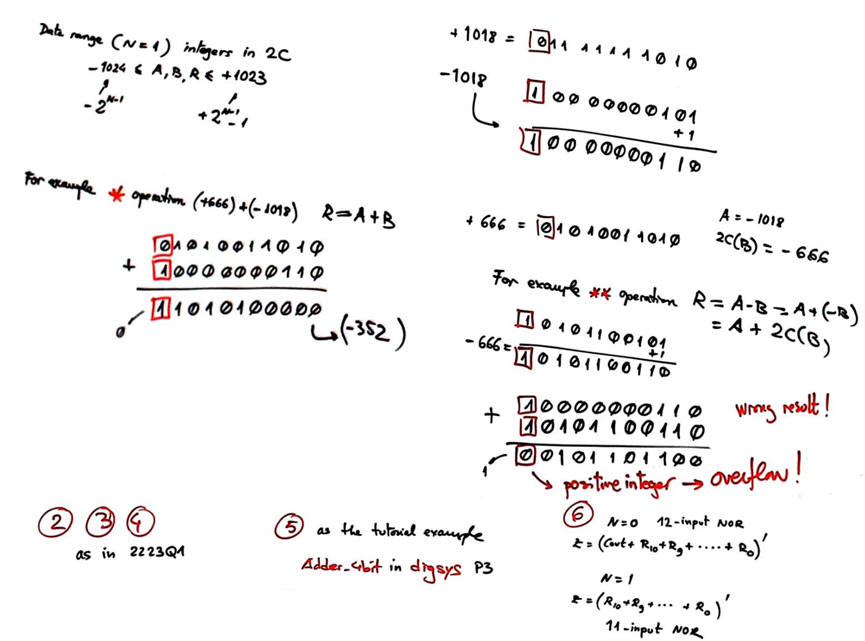 Data range (N=1) integers in 2C
-1024 ≤ A, B, R ≤ +1023
-2^N-1 +2^N-1 -1
+1018 = 01111111010
-1018
10000000101
+1
10000000110
For example * operation (+666)+(-1018) R=A+B
01010011010
+ 10000000110
11010100000
0 (-352)
+666 = 01010011010
A = -1018
2C(B) = -666
For example ** operation R = A-B = A+(-B)
= A + 2C(B)
10101100101
+1
-666 = 10101100110
+ 10000000110 wrong result!
10101100110
1 00101101100
positive integer → overflow!
2 3 4
as in 2223Q1
5 as the tutorial example
Adder_4bit in digsys P3
6 N=0 12-input NOR
Z = (Cout + R10+R9+ ····+ R0)'
N=1
Z = (R10+R9+ ··· + R0)'
11-input NOR